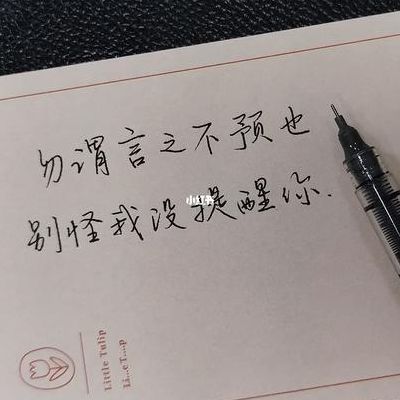 勿谓言之不预也
别怪我没提醒你.
小红书
Little Tulip
Li...eT....p